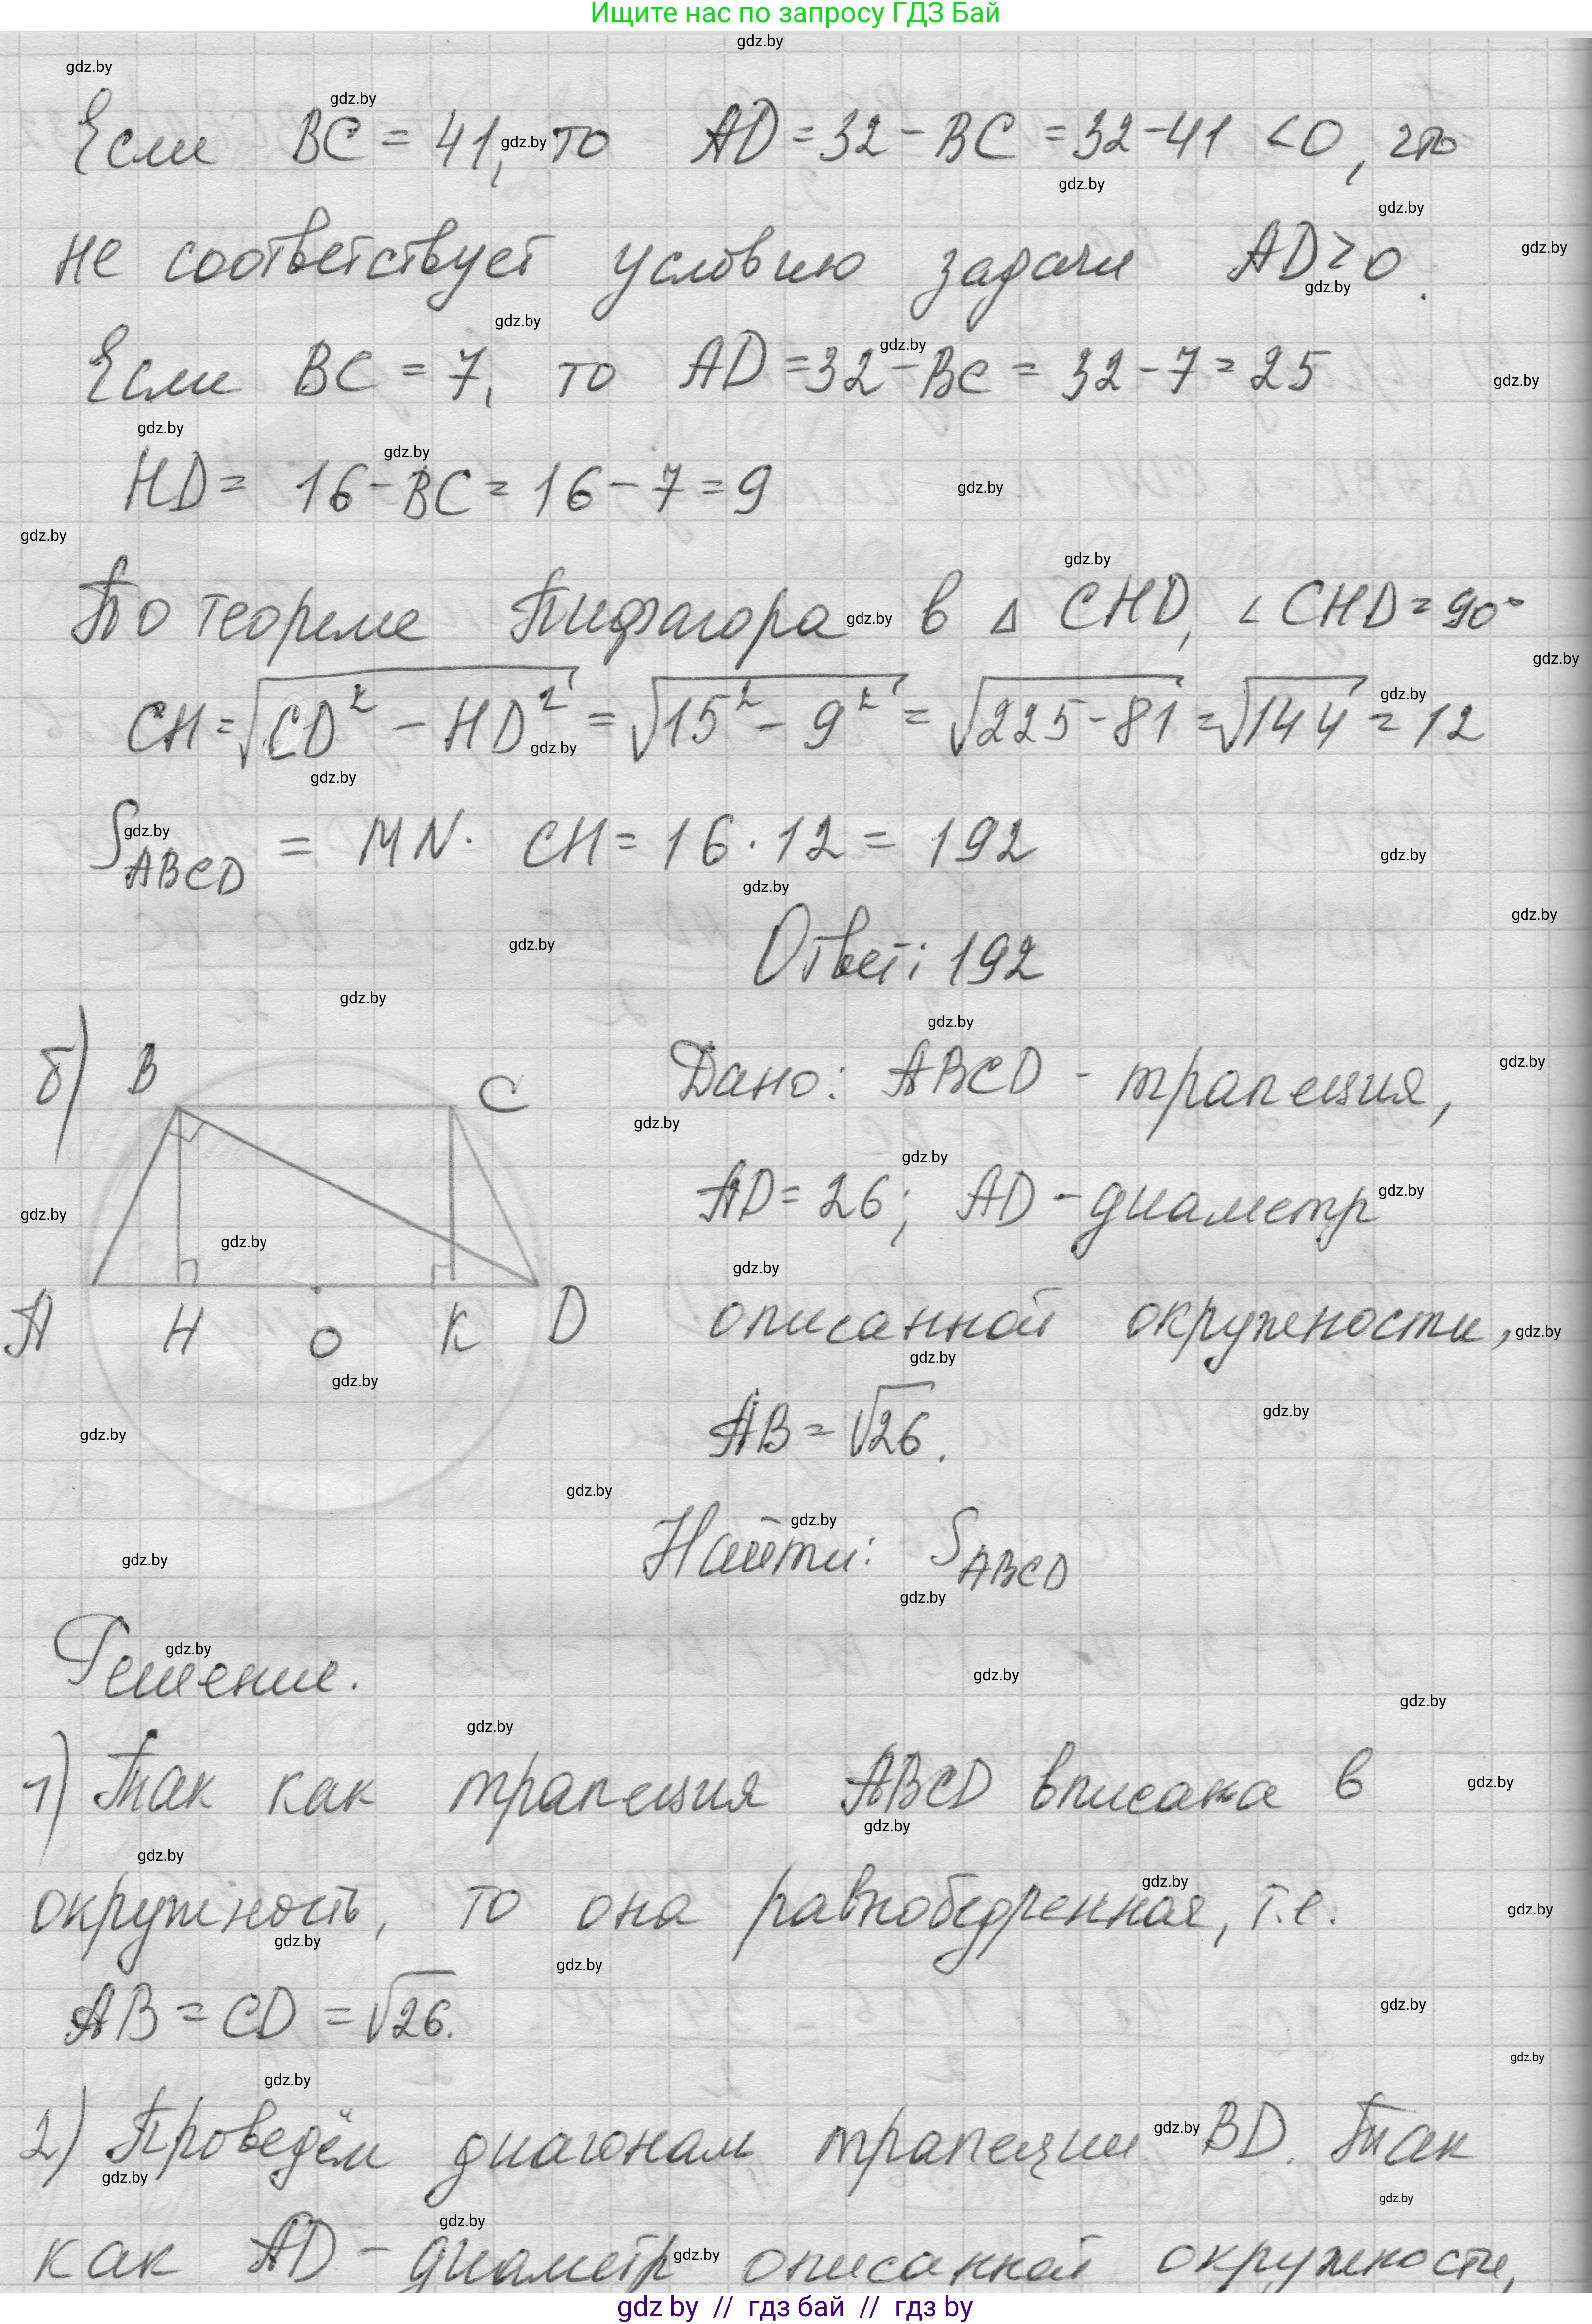 Ищите нас по запросу ГДЗ Бай
Если BC = 41, то AD = 32 - BC = 32 - 41 < 0, что
не соответствует условию задачи AD > 0.
Если BC = 7, то AD = 32 - BC = 32 - 7 = 25
HD = 16 - BC = 16 - 7 = 9
По теореме Пифагора в △ CHD, ∠ CHD = 90°
CH = √(CD² - HD²) = √(15² - 9²) = √(225 - 81) = √144 = 12
S ABCD = MN · CH = 16 · 12 = 192
Ответ: 192
б) B C
A H O K D
Дано: ABCD - трапеция,
AD = 26; AD - диаметр
описанной окружности,
AB = √26.
Найти: S ABCD
Решение.
1) Так как трапеция ABCD вписана в
окружность, то она равнобедренная, т.е.
AB = CD = √26.
2) Проведём диагонам трапеции BD. Так
как AD - диаметр описанной окружности,
gdz by // гдз бай // гдз by